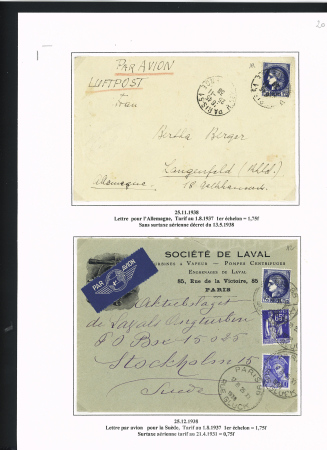 PAR AVION
LUFTPOST
Frau
Bertha Berger
Lingenfeld
Allemagne
25.11.1938
Lettre pour l'Allemagne, Tarif au 1.8.1937 1er échelon = 1,75f
Sans surtaxe aérienne décret du 13.5.1938
SOCIÉTÉ DE LAVAL
TURBINES A VAPEUR - POMPES CENTRIFUGES
ENGRENAGES DE LAVAL
85, Rue de la Victoire, 85
PARIS
PAR AVION
Aktiebolaget
de Lavals Ångturbin
P O Box 15085
Stockholm 15
Suède
25.12.1938
Lettre par avion pour la Suède, Tarif au 1.8.1937 1er échelon = 1,75f
Surtaxe aérienne tarif au 21.4.1931 = 0,75f